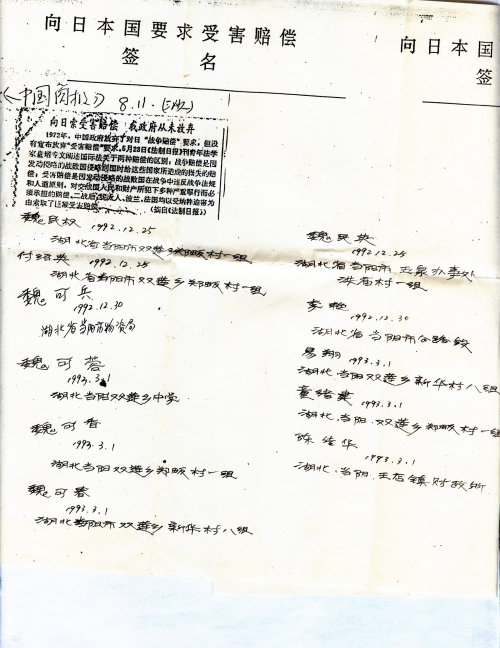 向日本国要求受害赔偿
签名
向日本国
签
《中国商报》 8.11.
向日索受害赔偿 我政府从未放弃
1972年，中国政府放弃了对日“战争赔偿”要求，但没
有宣布放弃“受害赔偿”要求。5月23日《法制日报》刊青年法学
家童增专文阐述国际法关于两种赔偿的区别：战争赔偿是因
发动侵略的战败国侵略别国时给这些国家所造成的损失的赔
偿；受害赔偿是因发动侵略的战败国在战争中违反战争法规
和人道原则，对交战国人民和财产所犯下多种严重罪行而必
须承担的赔偿。二战后犹太人、波兰、法国均以受纳粹迫害为
由索取了巨额受害赔偿。
（摘自《法制日报》）
魏民权 1992.12.25
湖北省当阳市双莲乡郑畈村一组
1992.12.25
湖北省当阳市双莲乡郑畈村一组
魏可兵
1992.12.30
湖北省当阳市物资局
魏可蓉
1993.3.1
湖北当阳双莲乡中学
魏可香
1993.3.1
湖北当阳双莲乡郑畈村一组
魏可春
1993.3.1
湖北当阳市双莲乡新华村八组
魏民英
1992.12.25
湖北省当阳市玉泉办事处
村一组
李艳
1992.12.30
湖北省当阳市公路段
易翔 1993.3.1
湖北当阳双莲乡新华村八组
童绪
1993.3.1
湖北当阳双莲乡郑畈村一组
陈
1993.3.1
湖北当阳王店镇财政所